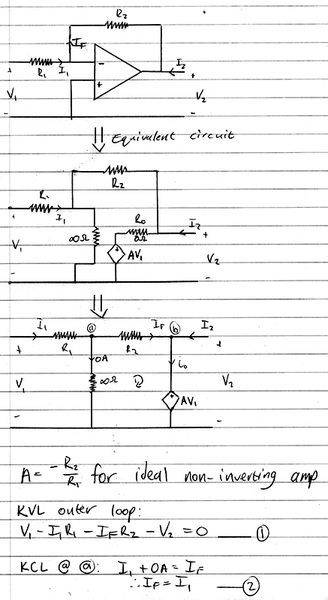 R₂
I_F
R₁ I₁ - + I₂
+ V₁ - + V₂ -
⇓ Equivalent circuit
R₂
R₁ I₁ R₀ I₂
∞Ω 0Ω
+ V₁ - AV₁ + V₂ -
⇓
I₁ ⓐ I_F ⓑ I₂
R₁ 0A R₂ i₀
+ V₁ - ∞Ω AV₁ + V₂ -
A = -R₂/R₁ for ideal non-inverting amp
KVL outer loop:
V₁ - I₁R₁ - I_F R₂ - V₂ = 0 — ①
KCL @ ⓐ: I₁ + 0A = I_F
∴ I_F = I₁ — ②